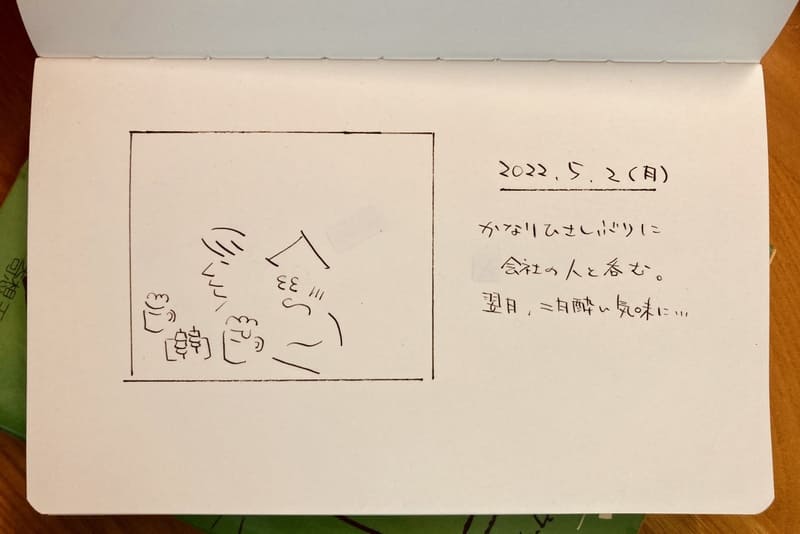 2022.5.2(月)
かなりひさしぶりに
会社の人と呑む。
翌日、二日酔い気味に…